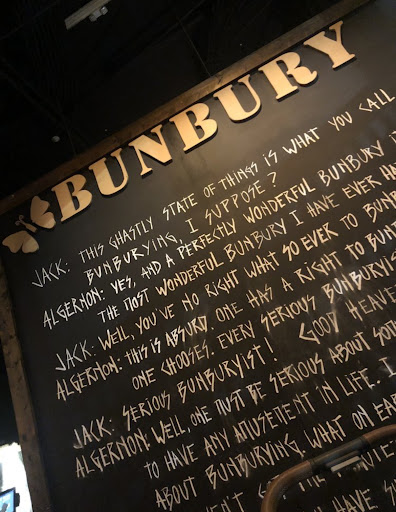 BUNBURY
JACK: THIS GHASTLY STATE OF THINGS IS WHAT YOU CALL
BUNBURYING, I SUPPOSE?
ALGERNON: YES, AND A PERFECTLY WONDERFUL BUNBURY IT
THE MOST WONDERFUL BUNBURY I HAVE EVER HAD
JACK: WELL, YOU'VE NO RIGHT WHAT SO EVER TO BUNB
ALGERNON: THIS IS ABSURD. ONE HAS A RIGHT TO BUNB
ONE CHOOSES. EVERY SERIOUS BUNBURYIS
JACK: SERIOUS BUNBURYIST! GOOD HEAVE
ALGERNON: WELL, ONE MUST BE SERIOUS ABOUT SOM
TO HAVE ANY AMUSEMENT IN LIFE. I
ABOUT BUNBURYING. WHAT ON EAR